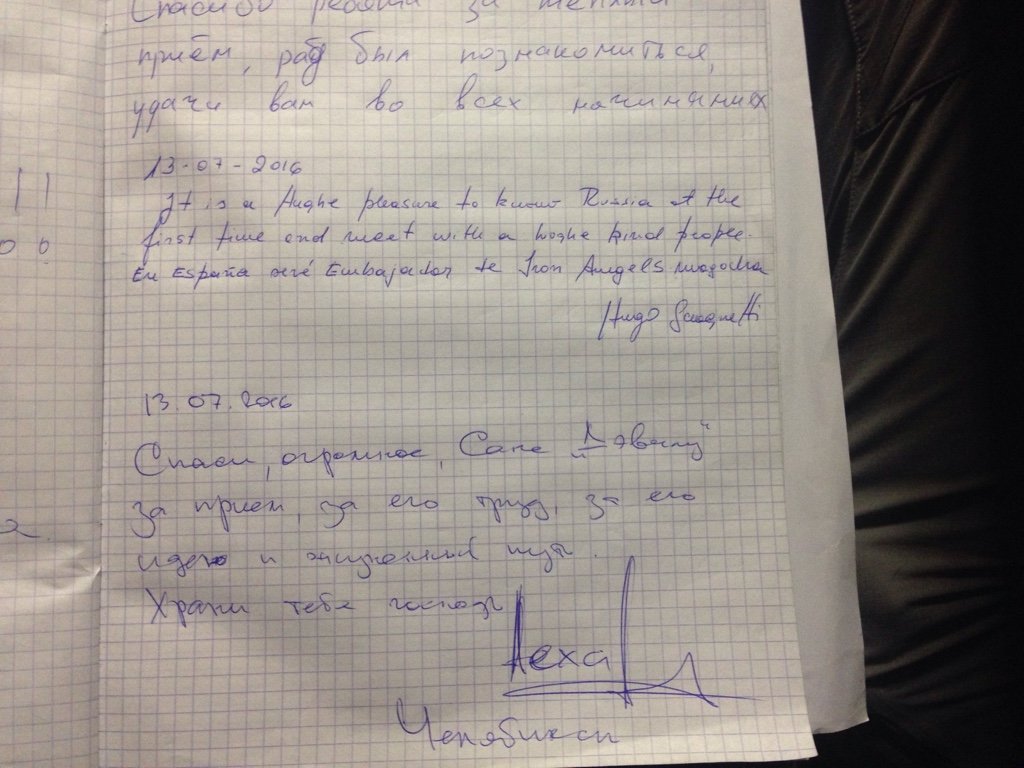 Спасибо ребята за теплый
приём, рад был познакомиться,
удачи вам во всех начинаниях
13-07-2016
It is a Hughe pleasure to know Russia at the
first time and meet with a hoghe kind people.
En España seré Embajador de Iron Angels
Hugo
13.07.2016
Спаси, огромное, Сане
за прием, за его труд, за его
идею и жизненный путь.
Храни тебя господь
Леха
Челябинск